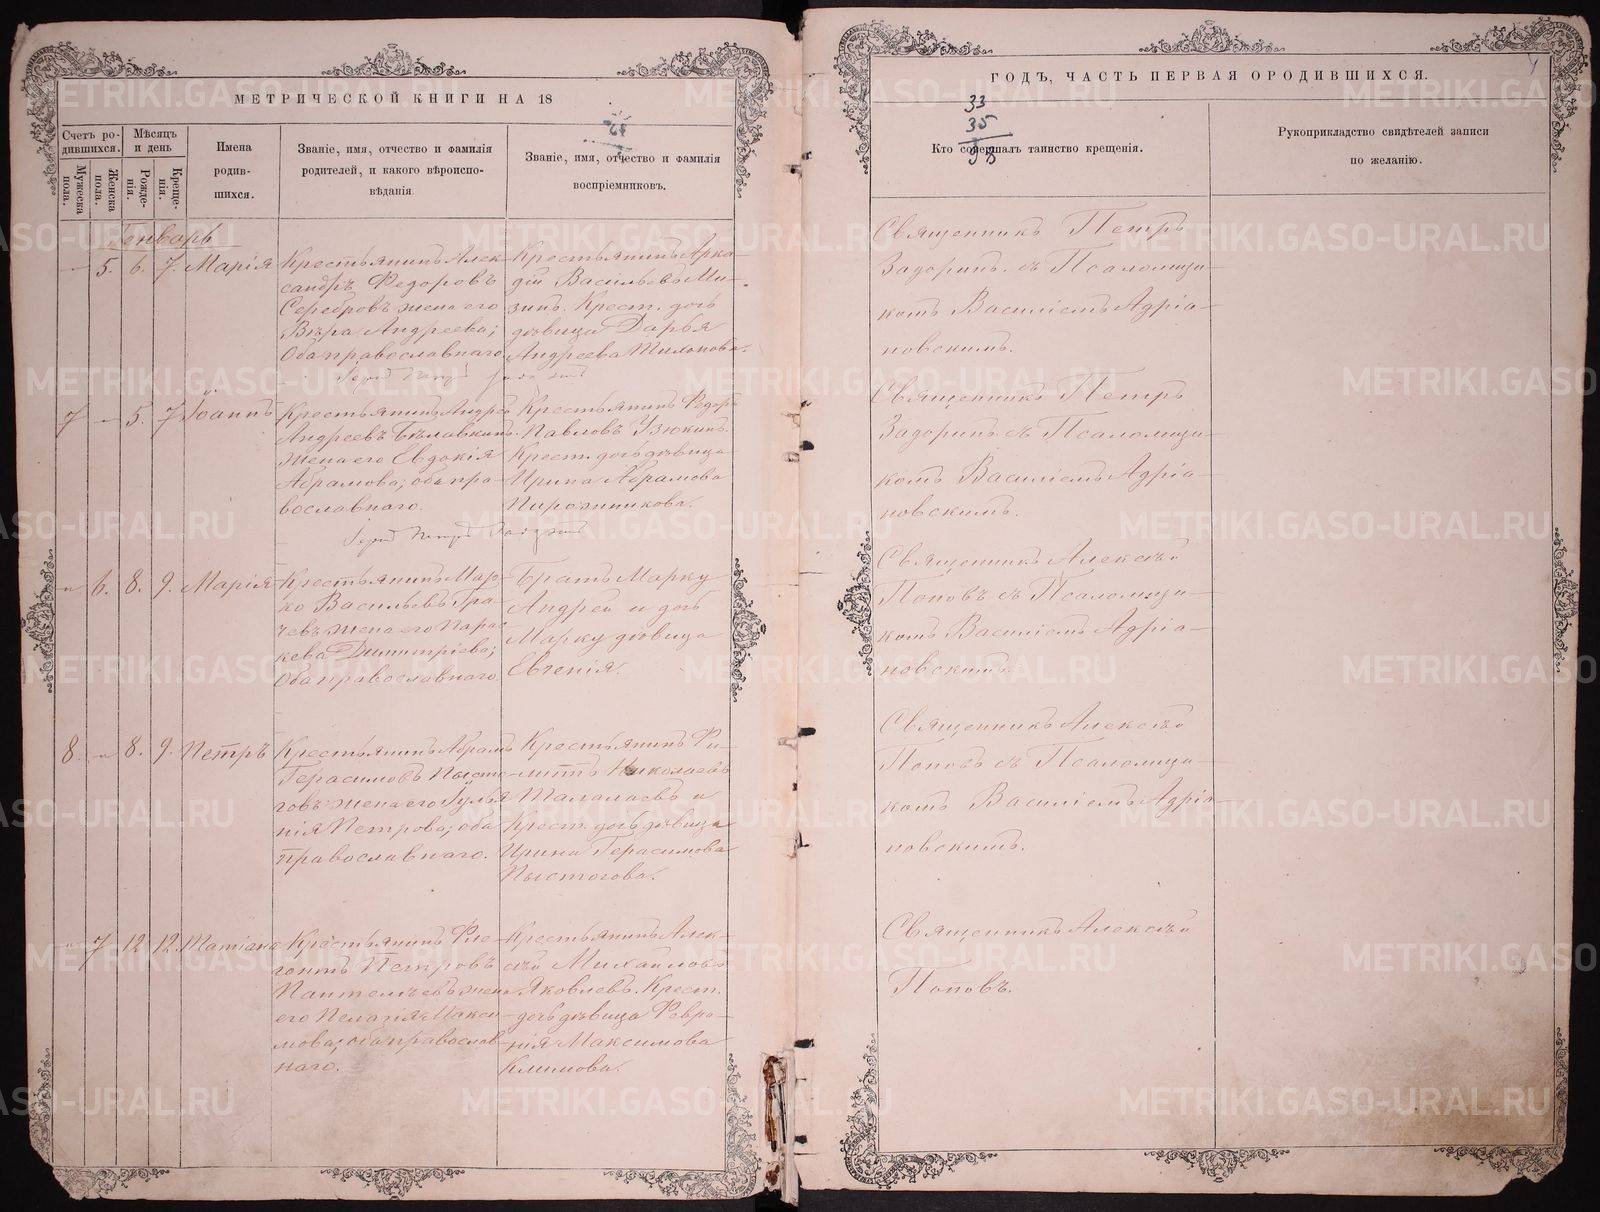 МЕТРИЧЕСКОЙ КНИГИ НА 18
Счетъ ро-
дившихся.
Мужеска пола.
Женска пола.
Мѣсяцъ и день
Рожде-
нія.
Креще-
нія.
Имена
родив-
шихся.
Званіе, имя, отчество и фамилія
родителей, и какого вѣроиспо-
вѣданія
Званіе, имя, отчество и фамилія
воспріемниковъ.
Генварь
5. 6. 7. Марія
Крестьянинъ Алек-
сандръ Федоровъ
Серебровъ жена его
Вѣра Андреева;
Оба православнаго
Крестьянинъ Арка-
дій Васильевъ Ми-
зинъ. Крест. дочь
дѣвица Дарья
Андреева Тихонова.
7 – 5. 7 Іоаннъ
Крестьянинъ Андрей
Андреевъ Бѣлавкинъ.
Жена его Евдокія
Абрамова; оба пра-
вославнаго.
Крестьянинъ Федоръ
Павловъ Узюкинъ.
Крест. дочь дѣвица
Ирина Абрамова
Пирожникова.
6. 8. 9. Марія
Крестьянинъ Мар-
ко Васильевъ Гра-
чевъ жена его Парас-
кева Димитріева;
Оба православнаго
Братъ Марку
Андрей и дочь
Марку дѣвица
Евгенія.
8 8. 9. Петръ
Крестьянинъ Абрамъ
Герасимовъ Пысто-
говъ жена его Гулья
нія Петрова; оба
православнаго.
Крестьянинъ Фи-
липпъ Николаевъ
Талалаевъ и
Крест. дочь дѣвица
Ирина Герасимова
Пыстогова.
7 12 12. Татіана
Крестьянинъ Фле-
гонтъ Петровъ
Пантелѣевъ жена
его Пелагія Макси-
мова; оба православ-
наго.
Крестьянинъ Алек-
сѣй Михайловъ
Яковлевъ. Крест.
дочь дѣвица Февро-
нія Максимова
Климова.
4
ГОДЪ, ЧАСТЬ ПЕРВАЯ О РОДИВШИХСЯ.
33
35
Кто совершалъ таинство крещенія.
Рукоприкладство свидѣтелей записи
по желанію.
Священникъ Петръ
Задоринъ съ Псаломщи-
комъ Василіемъ Адріа-
новскимъ.
Священникъ Петръ
Задоринъ съ Псаломщи-
комъ Василіемъ Адріа-
новскимъ.
Священникъ Алексѣй
Поповъ съ Псаломщи-
комъ Василіемъ Адріа-
новскимъ.
Священникъ Алексѣй
Поповъ съ Псаломщи-
комъ Василіемъ Адріа-
новскимъ.
Священникъ Алексѣй
Поповъ.
METRIKI.GASO-URAL.RU